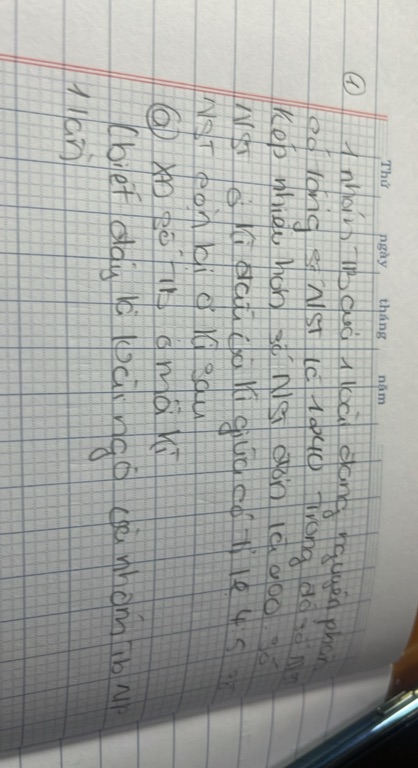 Thứ ngày tháng năm
① 1 nhóm TB của 1 loài đang nguyên phân
có tổng số NST là 1240 Trong đó số NST
kép nhiều hơn số NST đơn là 200 số
NST ở kì đầu kì giữa có tỉ lệ 4 5 số
NST còn lại ở kì sau
ⓐ XĐ số TB ở mỗi kì
(biết đây là loài ngô cả nhóm TB NP
1 lần)